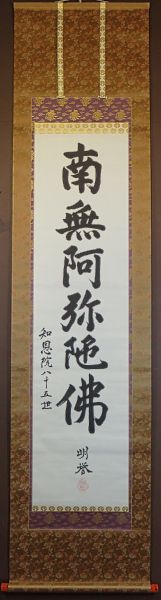 南無阿弥陀佛
知恩院八十五世
明誉